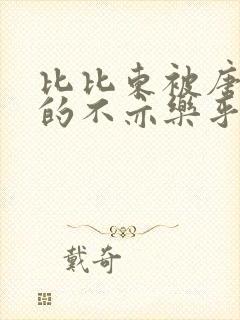 比比東被唐
的不亦樂乎
戴奇